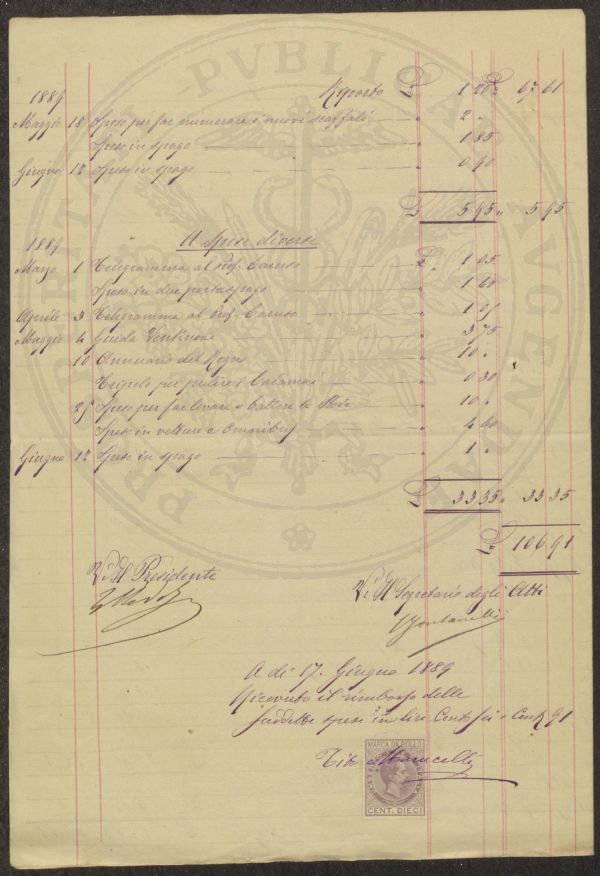 1889 Riporto £ 1 20 £ 67 61
Maggio 18 Spese per far numerare i nuovi scaffali " 2 "
Spese in spago " 1 85
Giugno 12 Spese in spago " 0 90
£ 5 95 " 5 95
1889 Spese diverse
Marzo 1 Telegramma al Prof. Caruso £ 1 05
Spesa in due portaspago " 1 60
Aprile 3 Telegramma al Prof. Caruso " 1 05
Maggio 4 Guida " 3 75
10 Annuario del Regno " 10 "
Tripolo per pulire i Calamai " 0 30
25 Spese per far levare e battere le " 10 "
Spese in vetture e Omnibus " 4 60
Giugno 12 Spese in spago " 1 "
£ 33 35 " 33 35
£ 106 91
V. Il Presidente
V. Il Segretario degli Atti
A dì 17. Giugno 1889
Ricevuto il rimborso delle
suddette spese in lire Cento sei e Cent. 91
Tito
MARCA DA BOLLO
CENT. DIECI
PVBLICA